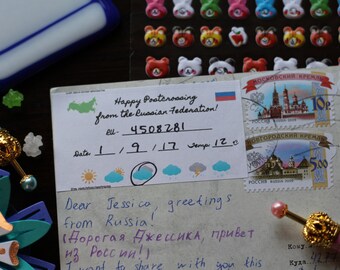 Happy Postcrossing
from the Russian Federation!
RU- 4508281
Date 1 / 9 / 17 Temp: 12
МОСКОВСКИЙ КРЕМЛЬ
10р
НОВГОРОДСКИЙ КРЕМЛЬ
5.00
РОССИЯ
Dear Jessica, greetings
from Russia!
(Дорогая Джессика, привет
из России!)
I want to share with you this
Кому
Куда